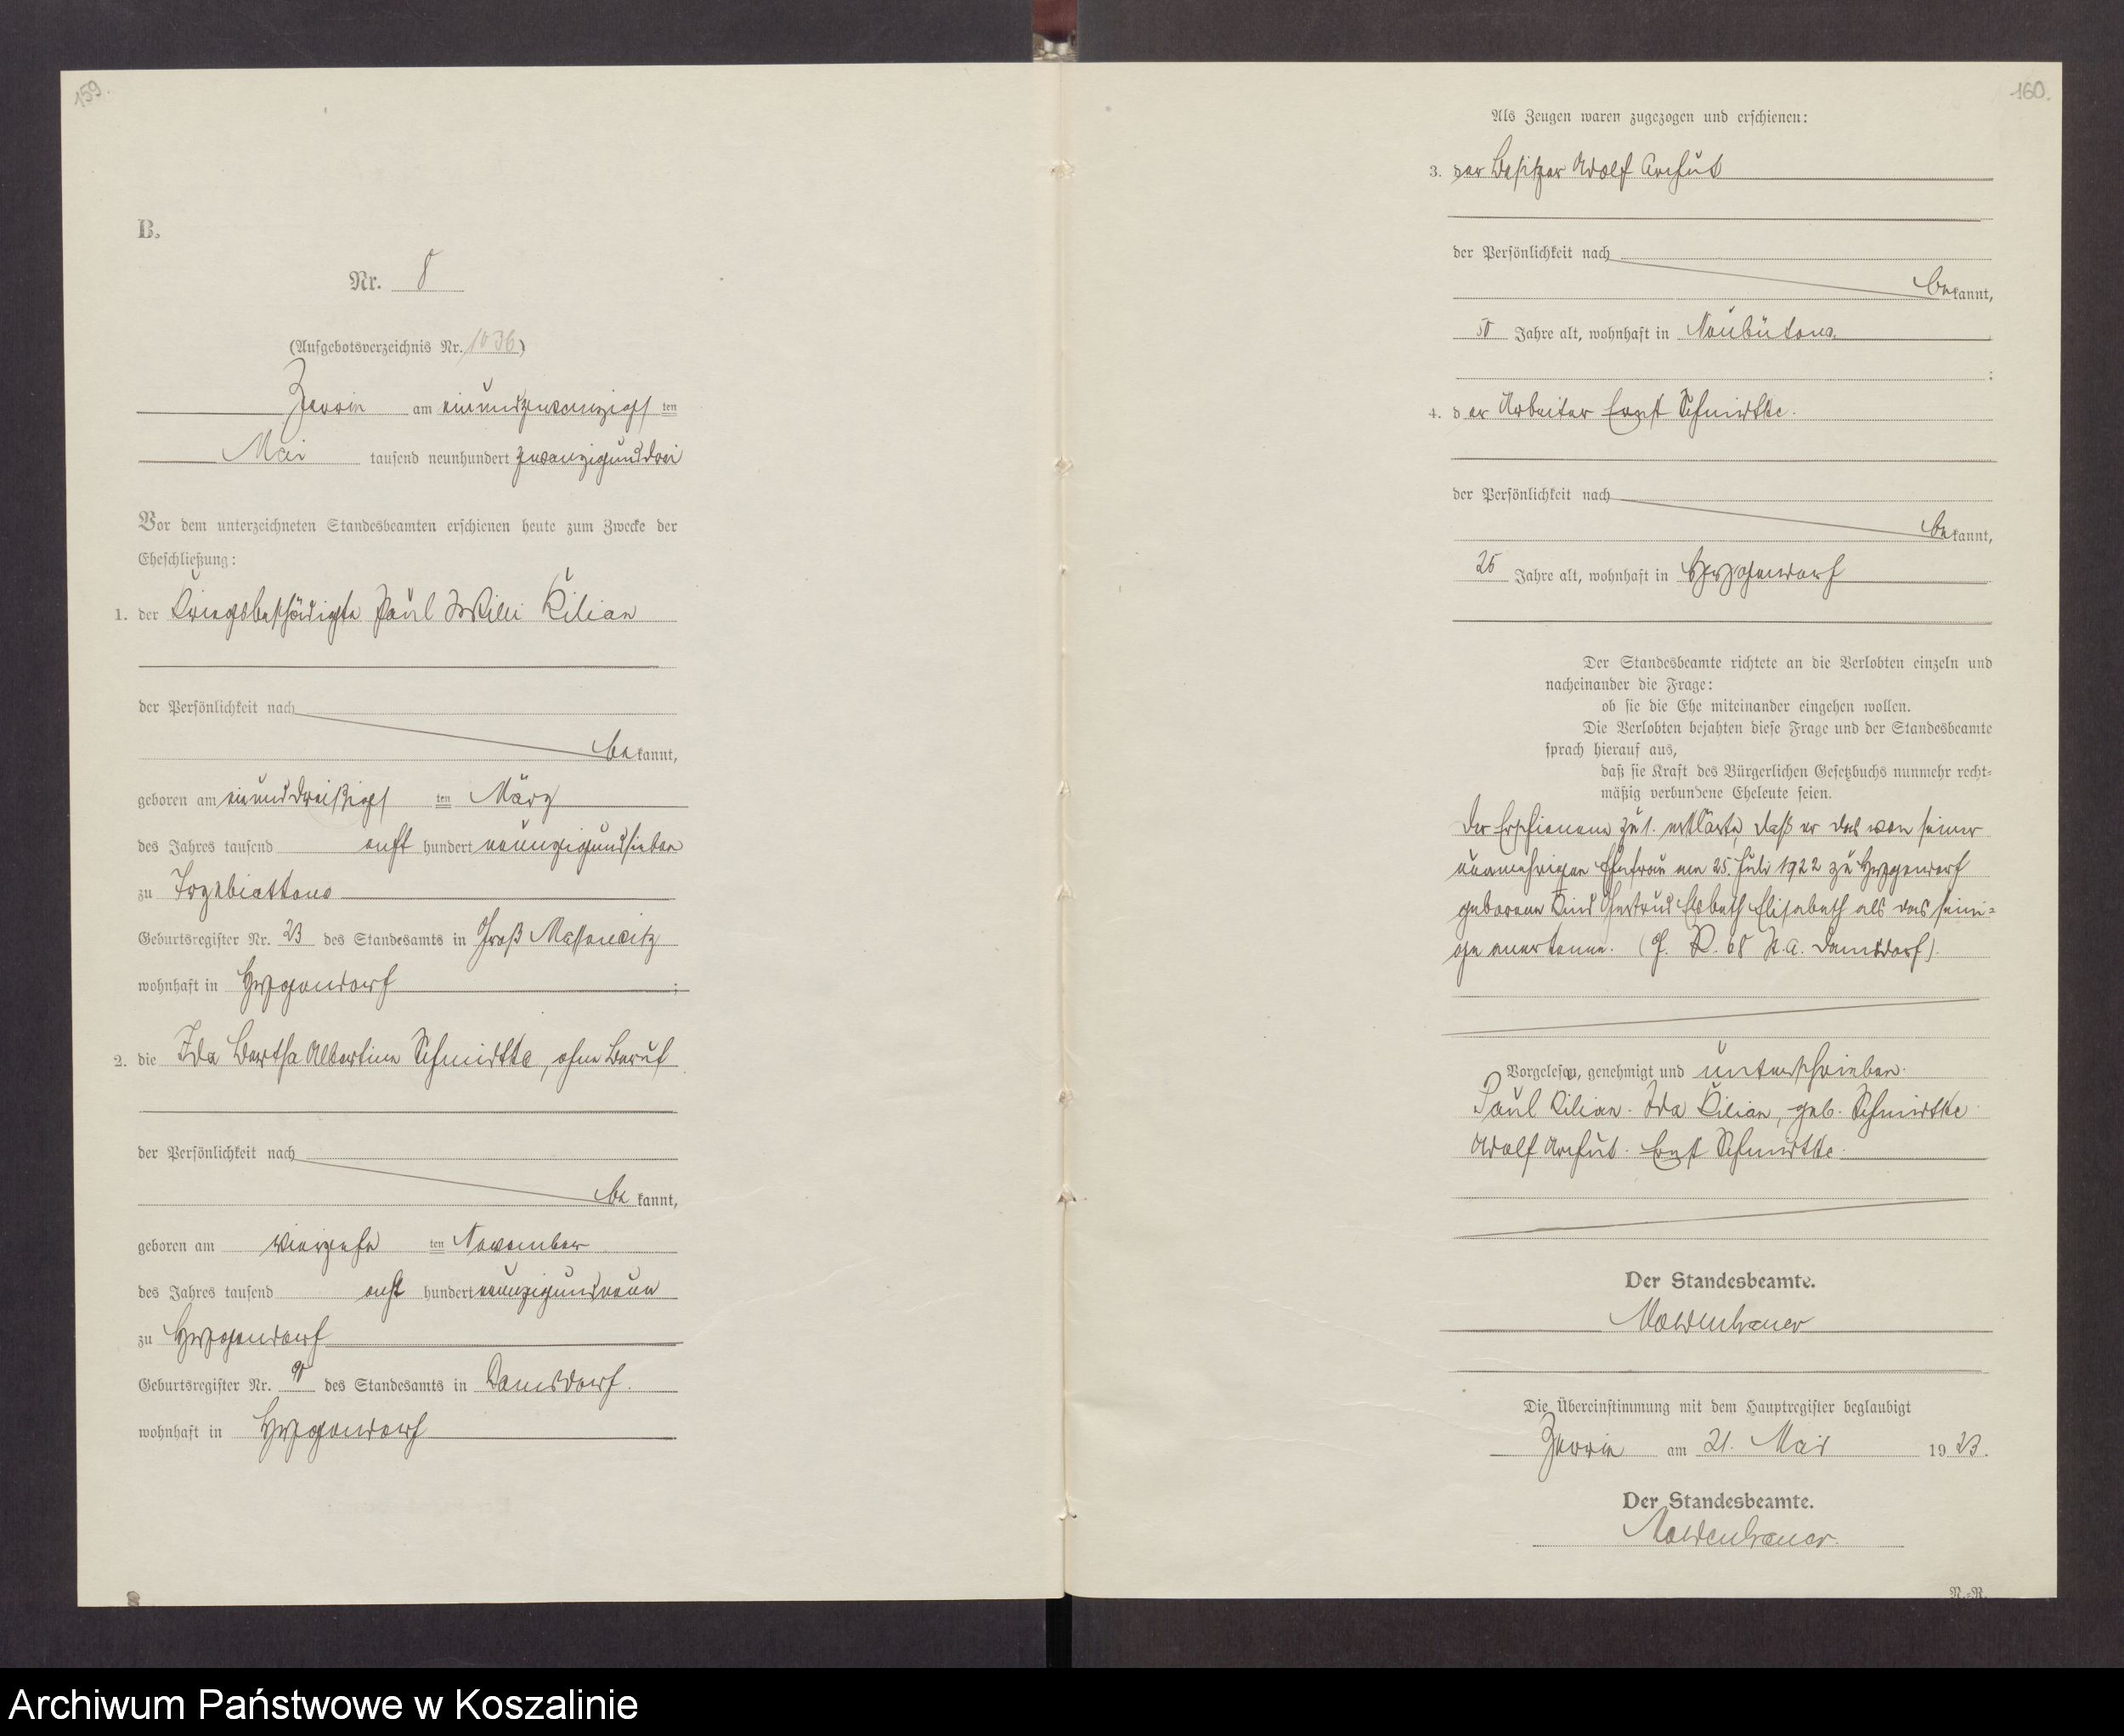 159.
B.
Nr. 8
(Aufgebotsverzeichnis Nr. 1036)
Zerrin am einundzwanzigsten
Mai tausend neunhundert zwanzigunddrei
Vor dem unterzeichneten Standesbeamten erschienen heute zum Zwecke der
Eheschließung:
1. der Kriegsbeschädigte Paul Willi Kilian
der Persönlichkeit nach
bekannt,
geboren am einunddreißigsten März
des Jahres tausend acht hundert neunzigundsieben
zu Trzebiatkow
Geburtsregister Nr. 23 des Standesamts in Groß Massowitz
wohnhaft in Hygendorf;
2. die Ida Bertha Albertine Schmidtke, ohne Beruf
der Persönlichkeit nach
bekannt,
geboren am vierzehnten November
des Jahres tausend acht hundert neunzigundneun
zu Hygendorf
Geburtsregister Nr. des Standesamts in Damsdorf.
wohnhaft in Hygendorf
8
160.
Als Zeugen waren zugezogen und erschienen:
3. der Besitzer Adolf Archut
der Persönlichkeit nach
bekannt,
50 Jahre alt, wohnhaft in Neuhütten
;
4. der Arbeiter Ernst Schmidtke.
der Persönlichkeit nach
bekannt,
25 Jahre alt, wohnhaft in Hygendorf
Der Standesbeamte richtete an die Verlobten einzeln und
nacheinander die Frage:
ob sie die Ehe miteinander eingehen wollen.
Die Verlobten bejahten diese Frage und der Standesbeamte
sprach hierauf aus,
daß sie Kraft des Bürgerlichen Gesetzbuchs nunmehr recht-
mäßig verbundene Eheleute seien.
Der Erschienene zu 1. erklärte, daß er das von seiner
nunmehrigen Ehefrau am 25. Juli 1922 zu Hygendorf
geborene Kind Gertrud Elsbeth Elisabeth als das seini-
ge anerkenne. (G. R. 68 St. A. Damsdorf).
Vorgelesen, genehmigt und unterschrieben.
Paul Kilian. Ida Kilian, geb. Schmidtke.
Adolf Archut. Ernst Schmidtke.
Der Standesbeamte.
Moldenhauer
Die Übereinstimmung mit dem Hauptregister beglaubigt
Zerrin am 21. Mai 1923.
Der Standesbeamte.
Moldenhauer.
N.-R.
Archiwum Państwowe w Koszalinie